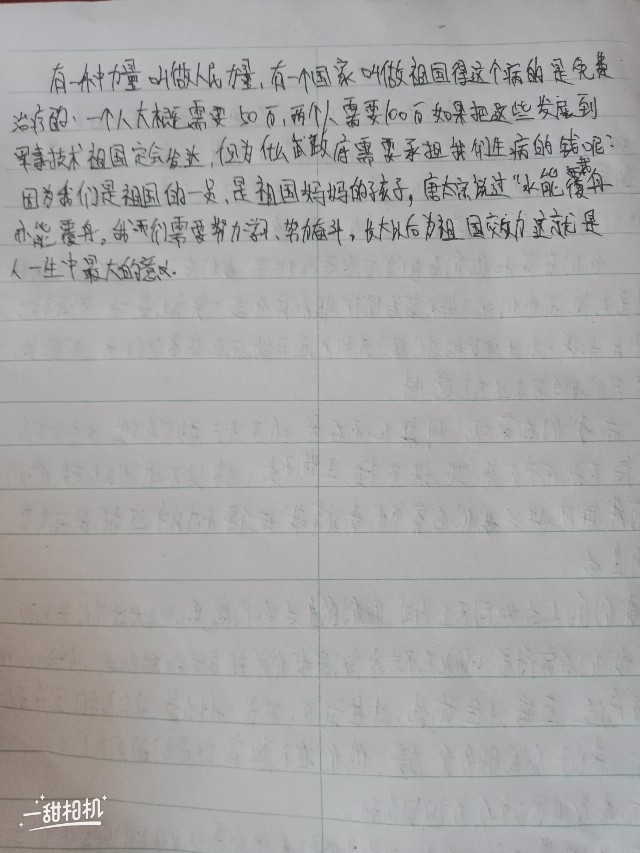 有一种力量叫做人民力量,有一个国家叫做祖国得这个病的是免费
治疗的.一个人大概需要50万,两个人需要100万如果把这些发展到
军事技术祖国定会发达,但为什么政府需要承担我们生病的钱呢?
因为我们是祖国的一员,是祖国妈妈的孩子,唐太宗说过"水能载舟
亦能覆舟,我们需要努力学习、努力奋斗,长大以后为祖国效力这就是
人一生中最大的意义.
一甜相机